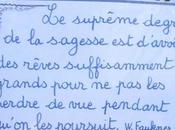 Le suprême degr
de la sagesse est d'avoi
des rêves suffisamment
grands pour ne pas les
perdre de vue pendant
qu'on les poursuit. W. Faulkner